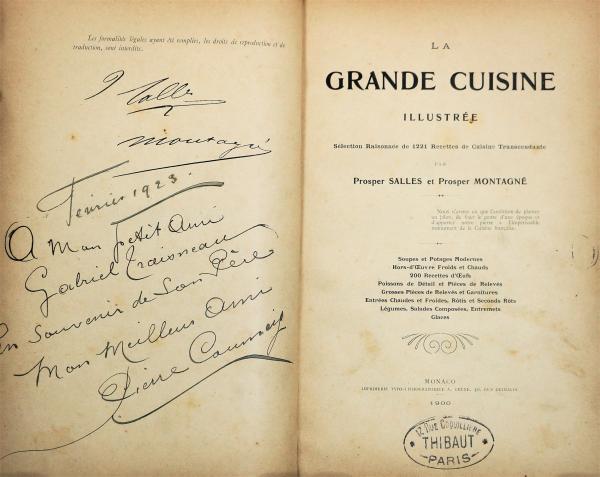 Les formalités légales ayant été remplies, les droits de reproduction et de
traduction, sont interdits.
P Salles
montagné
Février 1923
A Mon petit Ami
Gabriel
En Souvenir de Son Père
Mon Meilleur Ami
Pierre
LA
GRANDE CUISINE
ILLUSTRÉE
Sélection Raisonnée de 1221 Recettes de Cuisine Transcendante
PAR
Prosper SALLES et Prosper MONTAGNÉ
Nous n'avons eu que l'ambition de planter
un jalon, de fixer le geste d'une époque et
d'apporter notre pierre à l'impérissable
monument de la Cuisine française.
Soupes et Potages Modernes
Hors-d'Œuvre Froids et Chauds
200 Recettes d'Œufs
Poissons de Détail et Pièces de Relevés
Grosses Pièces de Relevés et Garnitures
Entrées Chaudes et Froides, Rôtis et Seconds Rôts
Légumes, Salades Composées, Entremets
Glaces
MONACO
IMPRIMERIE TYPO-LITHOGRAPHIQUE A.
1900
12, RUE COQUILLIÈRE
THIBAUT
PARIS